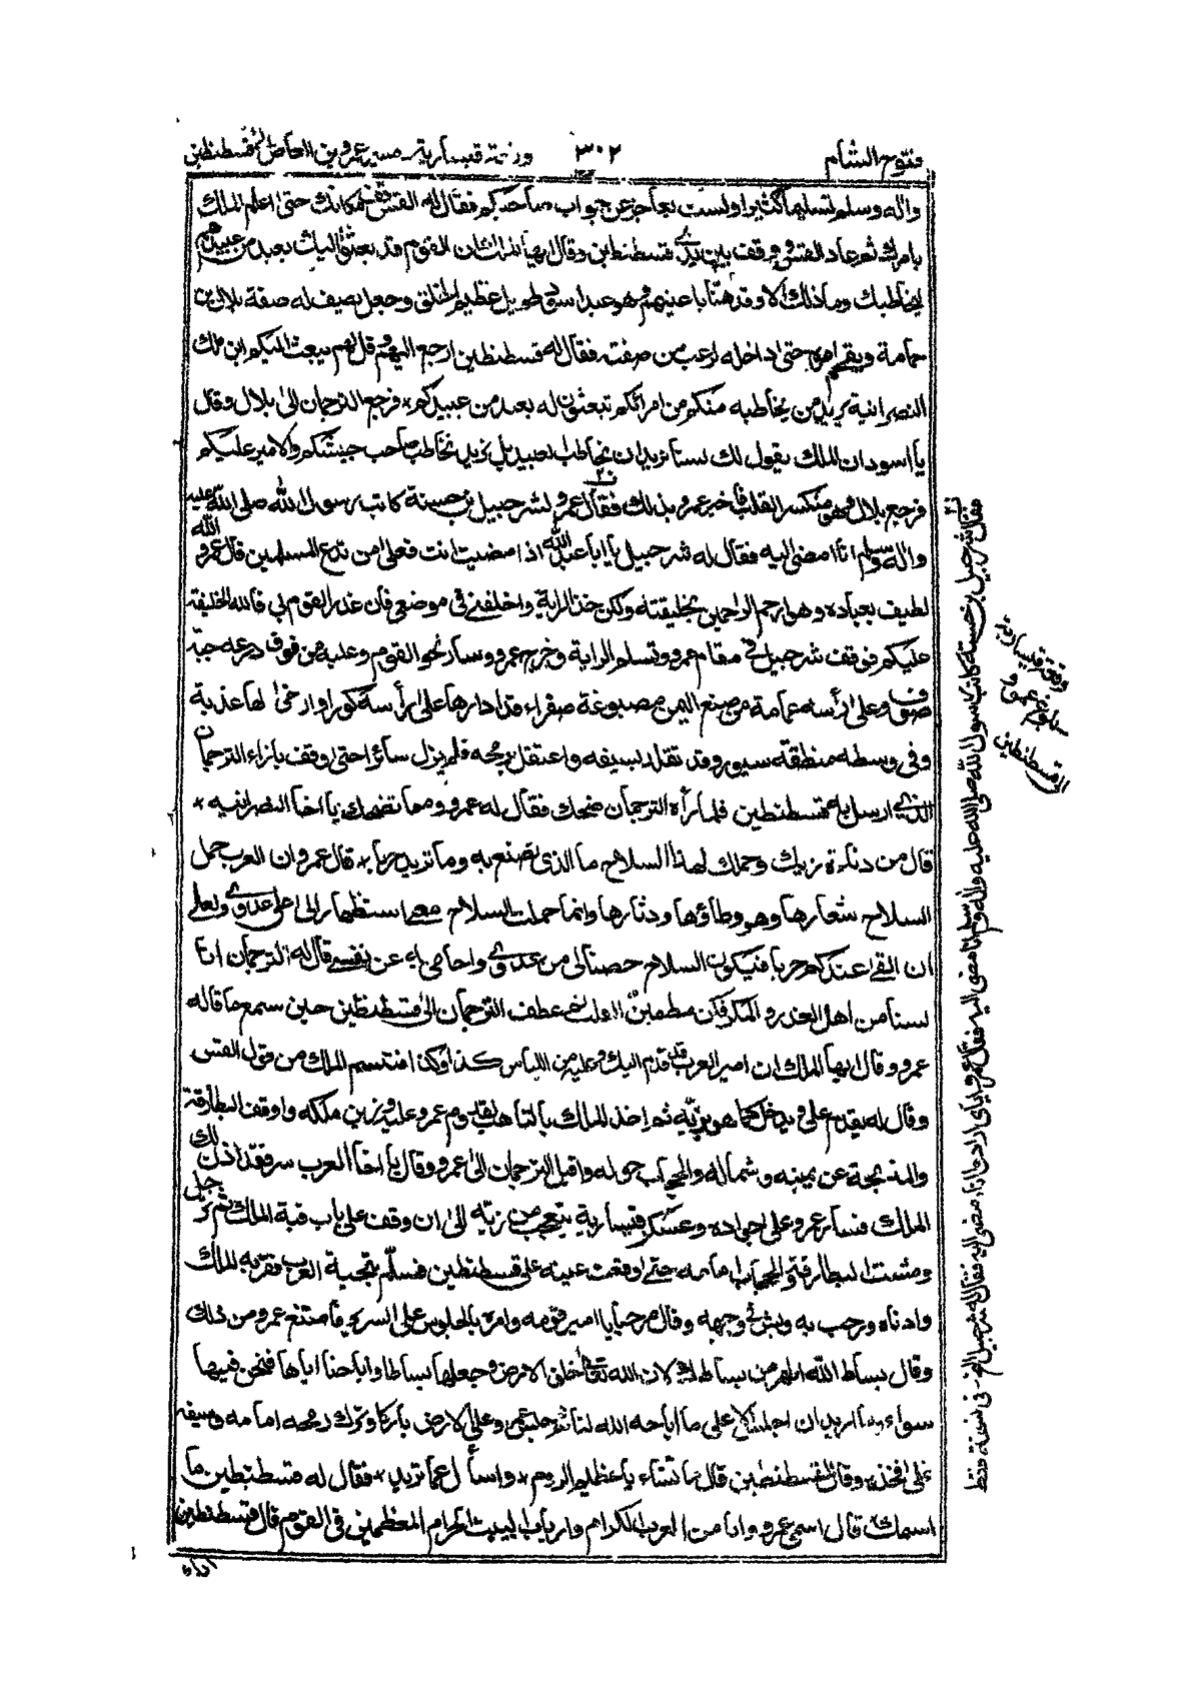 فتوح الشام ٣٠٢ وقعة قيسارية مسير عمرو بن العاص الى قسطنطين
واله وسلم تسليما كثيرا ولست بعاجز عن جواب صاحبكم فقال له القس فقف مكانك حتى اعلم الملك
بامرك ثم عاد القس ووقف بين يدى قسطنطين وقال ايها الملك ان القوم قد بعثوا اليك بعبد من عبيدهم
يخاطبك وما ذلك الا وقد هنّا باعينهم وهو عبد اسود طويل عظيم الخلق وجعل يصيف له صفة بلال بن
حمامة ويفخم امره حتى داخله لرعب من صفته فقال له قسطنطين ارجع اليهم وقل لهم يبعث اليكم ابن ملك
النصرانية يريد من يخاطبه منكم من امرائكم تبعثون له بعبد من عبيدكم * فرجع الترجمان الى بلال وقال
يا اسود ان الملك يقول لك لسنا نريد ان نخاطب العبيد بل نريد نخاطب صاحب جيشكم والامير عليكم
فرجع بلال وهو منكسر القلب فاخبر عمرو بذلك فقال عمرو لشرحبيل بن حسنة كاتب رسول الله صلى الله عليه
واله وسلم انا امضى اليه فقال له شرحبيل يا ابا عبد الله اذا مضيت انت فعلى من تدع المسلمين قال عمرو الله
لطيف بعباده وهو ارحم الراحمين بخليقته ولكن خذ الراية واخلفنى فى موضعى فان غدر القوم بى فالله الخليفة
عليكم فوقف شرحبيل فى مقام عمرو وتسلم الراية وخرج عمرو وسار نحو القوم وعليه من فوق درعه جبة
صوف وعلى رأسه عمامة من صنع اليمن مصبوغة صفراء قد ادارها على رأسه كورا وارخى لها عذبة
وفى وسطه منطقة سيور وقد تقلد بسيفه واعتقل برمحه فلم يزل سائرا حتى وقف بازاء الترجمان
الذى ارسل به قسطنطين فلما رآه الترجمان ضحك فقال له عمرو ومما تضحك يا اخا النصرانية *
قال من دناءة زيك وحملك لهذا السلاح ما الذى تصنع به وما تريد حربا * قال عمرو ان العرب حمل
السلاح شعارها وهو وطاؤها ودثارها وانما حملت السلاح معى استظهارا لى على عدوى ولعلى
ان القى عندكم حربا فيكون السلاح حصنا لى من عدوى واحامى به عن نفسى قال له الترجمان انا
لسنا من اهل الغدر والمكر فكن مطمئن القلب ثم عطف الترجمان الى قسطنطين حين سمع ما قاله
عمرو وقال ايها الملك ان امير العرب قد قدم اليك وعليه من اللباس كذا وكذا فتبسم الملك من قول القس
وقال له يقدم على ويدخل كما هو بزيّه ثم اخذ الملك بالتأهب لقدوم عمرو عليه وزين ملكه واوقف البطارقة
والمذبحة عن يمينه وشماله والحجاب حوله واقبل الترجمان الى عمرو وقال يا اخا العرب سر فقد اذن لك
الملك فسار عمرو على جواده وعسكر قيسارية يتعجب من زيّه الى ان وقف على باب قبة الملك ثم ترجل
ومشت البطارقة والحجاب امامه حتى وقعت عينه على قسطنطين فسلّم بتحية العرب فقربه الملك
وادناه ورحب به وبش فى وجهه وقال مرحبا يا امير قومه وامره بالجلوس على السرير فامتنع عمرو من ذلك
وقال بساط الله اطهر من بساطك لان الله تعالى خلق الارض وجعلها بساطا واباحنا اياها فنحن فيها
سواء وما اريد ان اجلس الا على ما اباحه الله لنا ثم جلس عمرو على الارض باركا وترك رمحه امامه وسيفه
على فخذه وقال لقسطنطين قل ما تشاء يا عظيم الروم * واسأل عما تريد * فقال له قسطنطين ما
اسمك قال اسمى عمرو وانا من العرب الكرام وارباب البيت الحرام المعظمين فى القوم قال قسطنطين
فقال شرحبيل بن حسنة كاتب رسول الله صلى الله عليه واله وسلم انا امضى اليه فقال عمرو انا امضى اليه فقال له شرحبيل الخ - فى نسخة فقط
واقعة قيسارية
القسطنطين